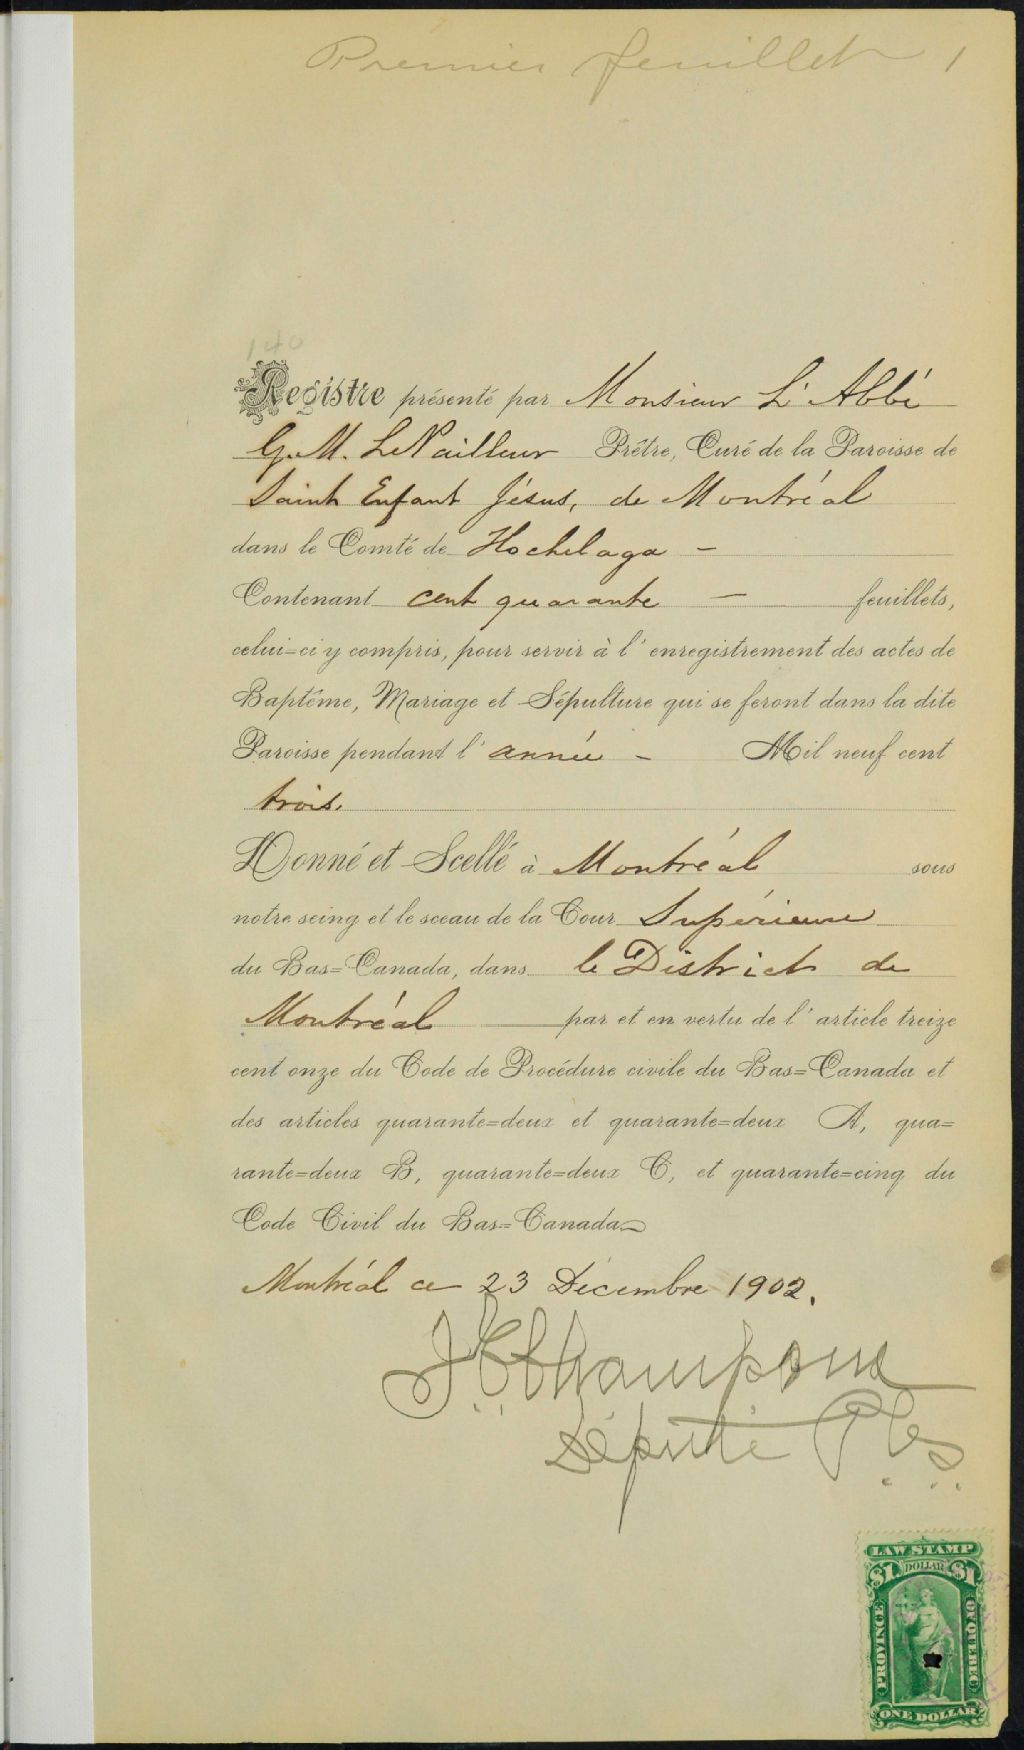 Premier feuillet 1
140
Registre présenté par Monsieur L'Abbé
G. M. LePailleur Prêtre, Curé de la Paroisse de
Saint Enfant Jésus, de Montréal
dans le Comté de Hochelaga –
Contenant cent quarante – feuillets,
celui=ci y compris, pour servir à l'enregistrement des actes de
Baptême, Mariage et Sépulture qui se feront dans la dite
Paroisse pendant l'année – Mil neuf cent
trois.
Donné et Scellé à Montréal sous
notre seing et le sceau de la Cour Supérieure
du Bas=Canada, dans le District de
Montréal par et en vertu de l'article treize
cent onze du Code de Procédure civile du Bas=Canada et
des articles quarante=deux et quarante=deux A, qua=
rante=deux B, quarante=deux C, et quarante=cinq du
Code Civil du Bas=Canada
Montréal ce 23 Décembre 1902.
Champoux
Député P
LAW STAMP
$1 DOLLAR $1
PROVINCE OF QUEBEC
ONE DOLLAR